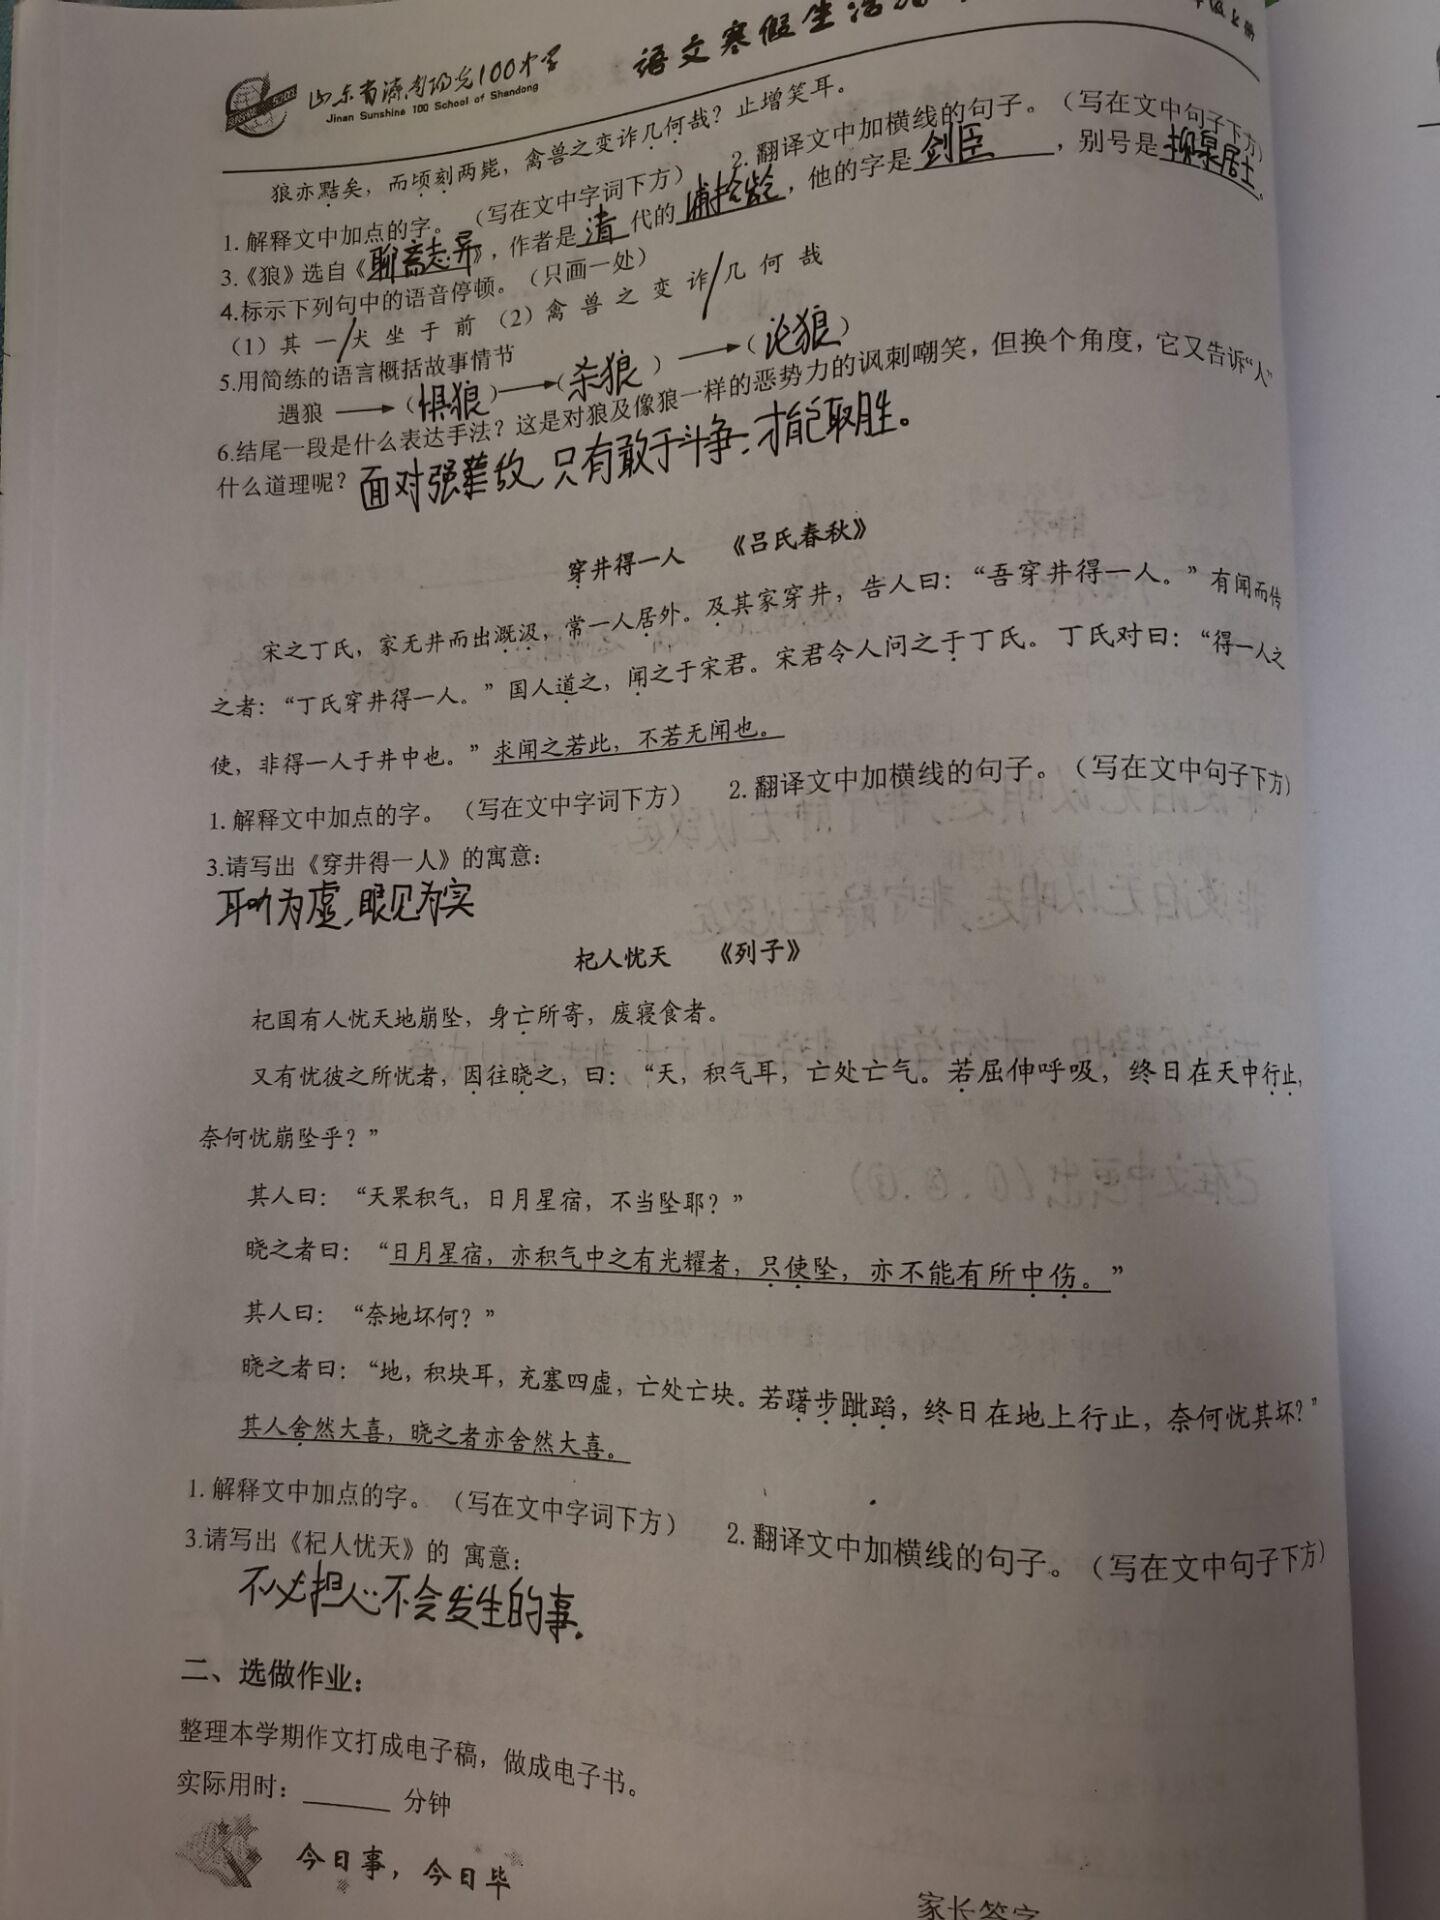 山东省济南阳光100中学
Jinan Sunshine 100 School of Shandong
语文寒假生活
狼亦黠矣，而顷刻两毙，禽兽之变诈几何哉？止增笑耳。
1. 解释文中加点的字。（写在文中字词下方） 2. 翻译文中加横线的句子。（写在文中句子下方）
3.《狼》选自《聊斋志异》，作者是 清 代的 浦松龄，他的字是 剑臣 ，别号是 柳泉居士。
4.标示下列句中的语音停顿。（只画一处）
（1）其 一/犬 坐 于 前 （2）禽 兽 之 变 诈/几 何 哉
5.用简练的语言概括故事情节
遇狼 →（惧狼）→（杀狼 ）→（论狼）
6.结尾一段是什么表达手法？这是对狼及像狼一样的恶势力的讽刺嘲笑，但换个角度，它又告诉“人”
什么道理呢？ 面对强敌，只有敢于斗争，才能取胜。
穿井得一人 《吕氏春秋》
宋之丁氏，家无井而出溉汲，常一人居外。及其家穿井，告人曰：“吾穿井得一人。”有闻而传
之者：“丁氏穿井得一人。”国人道之，闻之于宋君。宋君令人问之于丁氏。丁氏对曰：“得一人之
使，非得一人于井中也。”求闻之若此，不若无闻也。
1. 解释文中加点的字。（写在文中字词下方） 2. 翻译文中加横线的句子。（写在文中句子下方）
3.请写出《穿井得一人》的寓意：
耳听为虚，眼见为实
杞人忧天 《列子》
杞国有人忧天地崩坠，身亡所寄，废寝食者。
又有忧彼之所忧者，因往晓之，曰：“天，积气耳，亡处亡气。若屈伸呼吸，终日在天中行止，
奈何忧崩坠乎？”
其人曰：“天果积气，日月星宿，不当坠耶？”
晓之者曰：“日月星宿，亦积气中之有光耀者，只使坠，亦不能有所中伤。”
其人曰：“奈地坏何？”
晓之者曰：“地，积块耳，充塞四虚，亡处亡块。若躇步跐蹈，终日在地上行止，奈何忧其坏？”
其人舍然大喜，晓之者亦舍然大喜。
1. 解释文中加点的字。（写在文中字词下方） 2. 翻译文中加横线的句子。（写在文中句子下方）
3.请写出《杞人忧天》的 寓意：
不必担心不会发生的事.
二、选做作业：
整理本学期作文打成电子稿，做成电子书。
实际用时：______ 分钟
今日事，今日毕
家长签字